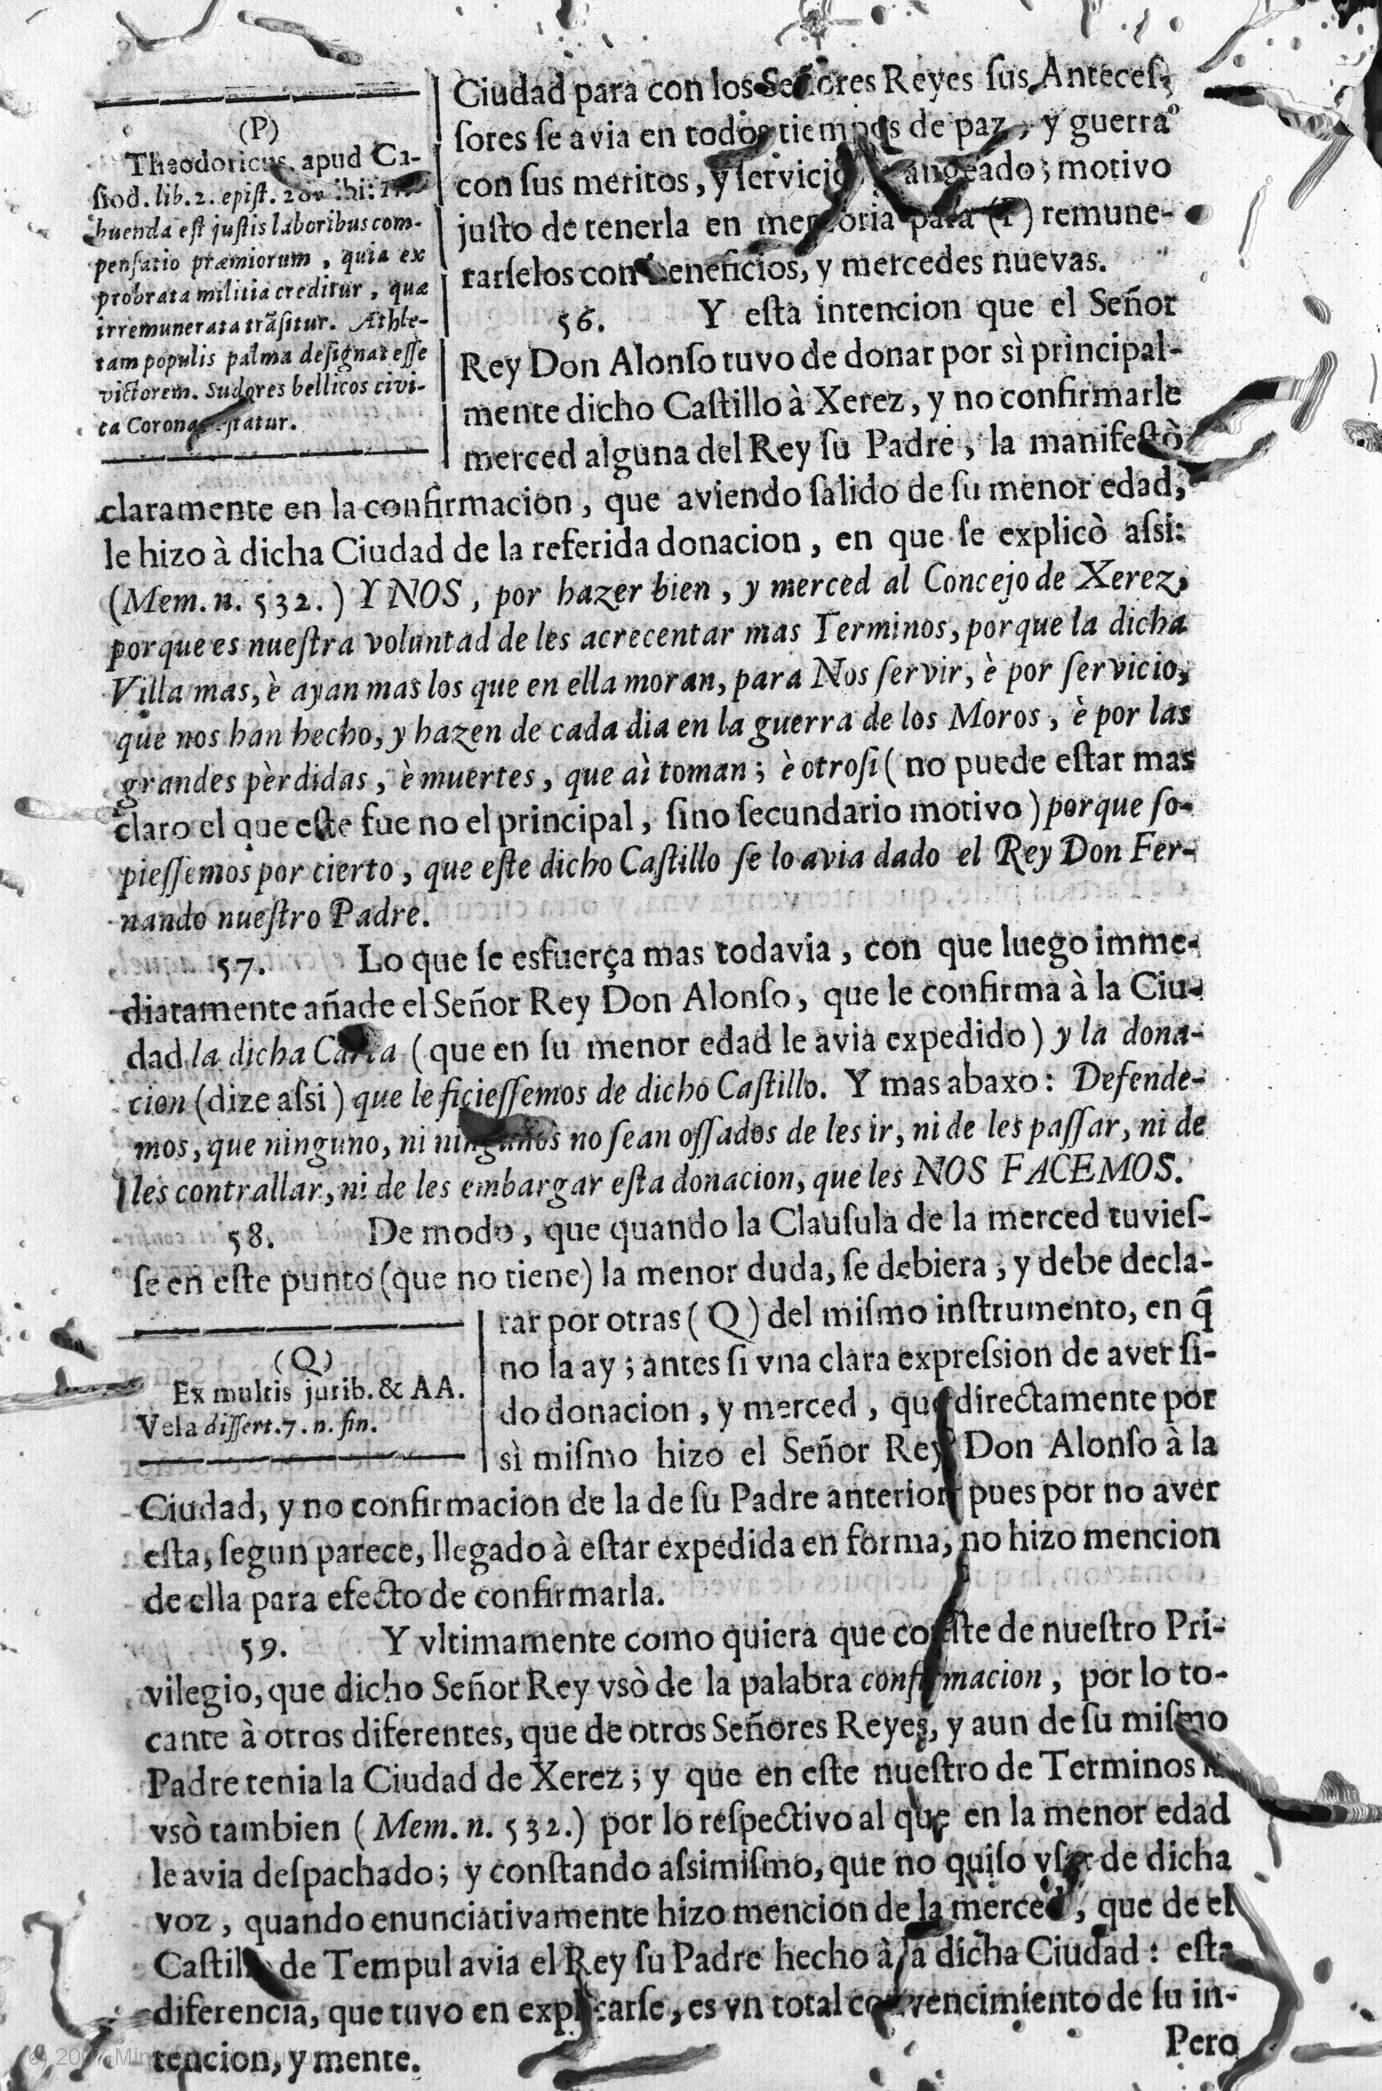 Ciudad para con los Señores Reyes sus Anteces-
sores se avia en todos tiempos de paz, y guerra
con sus meritos, y servicio angeado; motivo
justo de tenerla en memoria para (P) remune-
rarselos con beneficios, y mercedes nuevas.
(P)
Theodoricus apud Ca-
siod. lib. 2. epist.
buenda est justis laboribus com-
pensatio præmiorum, quia ex
probrata militia creditur, quæ
irremunerata trãsitur. Athle-
tam populis palma designat esse
victorem. Sudores bellicos civi-
ca Corona
56. Y esta intencion que el Señor
Rey Don Alonso tuvo de donar por sì principal-
mente dicho Castillo à Xerez, y no confirmarle
merced alguna del Rey su Padre, la manifestò
claramente en la confirmacion, que aviendo salido de su menor edad,
le hizo à dicha Ciudad de la referida donacion, en que se explicò assi:
(Mem. n. 532.) Y NOS, por hazer bien, y merced al Concejo de Xerez,
porque es nuestra voluntad de les acrecentar mas Terminos, porque la dicha
Villa mas, è ayan mas los que en ella moran, para Nos servir, è por servicio,
que nos han hecho, y hazen de cada dia en la guerra de los Moros, è por las
grandes pèrdidas, è muertes, que aì toman; è otrosi (no puede estar mas
claro el que este fue no el principal, sino secundario motivo) porque so-
piessemos por cierto, que este dicho Castillo se lo avia dado el Rey Don Fer-
nando nuestro Padre.
57. Lo que se esfuerça mas todavia, con que luego imme-
diatamente añade el Señor Rey Don Alonso, que le confirma à la Ciu-
dad la dicha Carta (que en su menor edad le avia expedido) y la dona-
cion (dize assi) que le ficiessemos de dicho Castillo. Y mas abaxo: Defende-
mos, que ninguno, ni ningunos no sean ossados de les ir, ni de les passar, ni de
les contrallar, ni de les embargar esta donacion, que les NOS FACEMOS.
58. De modo, que quando la Clausula de la merced tuvies-
se en este punto (que no tiene) la menor duda, se debiera, y debe decla-
rar por otras (Q) del mismo instrumento, en q̃
no la ay; antes si vna clara expression de aver si-
do donacion, y merced, que directamente por
sì mismo hizo el Señor Rey Don Alonso à la
(Q)
Ex multis jurib. & AA.
Vela dissert. 7. n. fin.
Ciudad, y no confirmacion de la de su Padre anterior pues por no aver
esta, segun parece, llegado à estar expedida en forma, no hizo mencion
de ella para efecto de confirmarla.
59. Y vltimamente como quiera que conste de nuestro Pri-
vilegio, que dicho Señor Rey vsò de la palabra confirmacion, por lo to-
cante à otros diferentes, que de otros Señores Reyes, y aun de su mismo
Padre tenia la Ciudad de Xerez; y que en este nuestro de Terminos
vsò tambien (Mem. n. 532.) por lo respectivo al que en la menor edad
le avia despachado; y constando assimismo, que no quiso vsar de dicha
voz, quando enunciativamente hizo mencion de la merced, que de el
Castillo de Tempul avia el Rey su Padre hecho à la dicha Ciudad: esta
diferencia, que tuvo en explicarse, es vn total convencimiento de su in-
tencion, y mente.
Pero